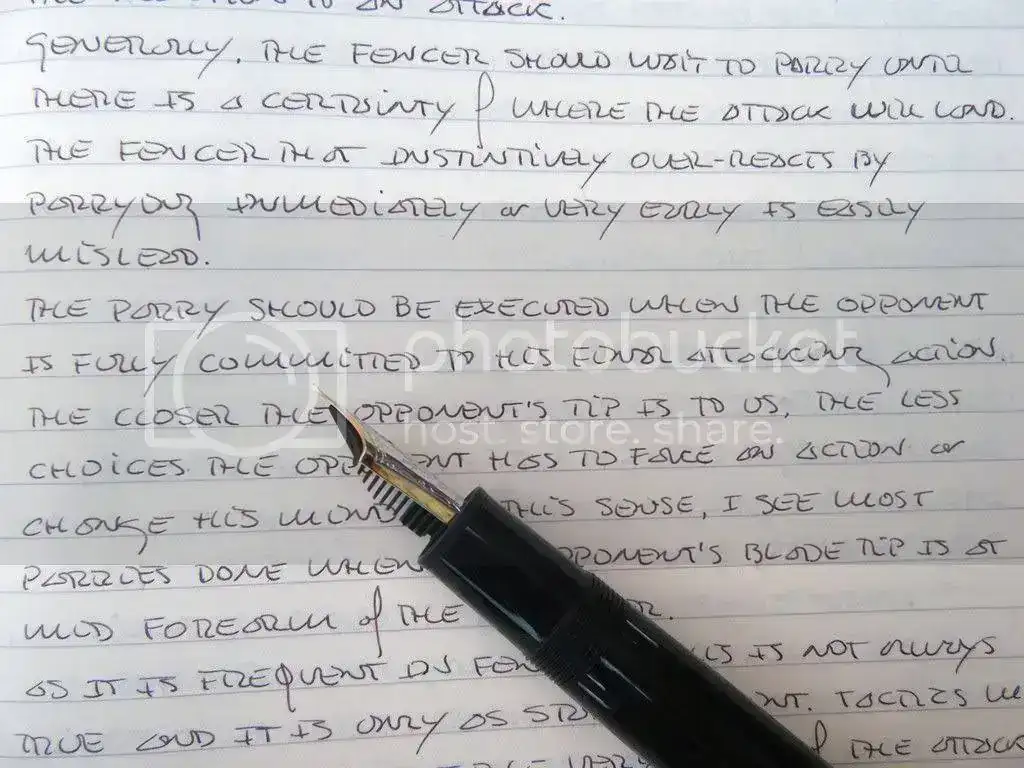 AN ATTACK.
GENERALLY. THE FENCER SHOULD WAIT TO PARRY UNTIL
THERE IS A CERTAINTY OF WHERE THE ATTACK WILL LAND.
THE FENCER THAT INSTINTIVELY OVER-REACTS BY
PARRYING IMMEDIATELY OR VERY EARLY IS EASILY
MISLEAD.
THE PARRY SHOULD BE EXECUTED WHEN THE OPPONENT
IS FULLY COMMITTED TO HIS FINAL ATTACKING ACTION.
photobucket
THE CLOSER THE OPPONENT'S TIP IS TO US, THE LESS
host. store. share.
CHOICES THE OPP ENT HAS TO FAKE AN ACTION OR
CHANGE HIS MIND THIS SENSE, I SEE MOST
PARRIES DONE WHEN OPPONENT'S BLADE TIP IS AT
MID FOREARM OF THE
AS IT IS FREQUENT IN IS NOT ALWAYS
TRUE AND IT IS ONLY AS TACTICS
OF THE ATTACK